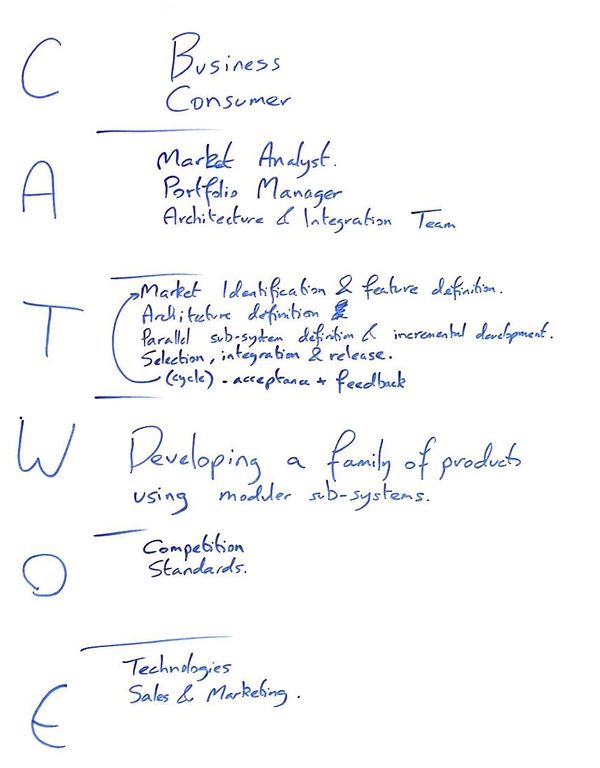 C
Business
Consumer
A
Market Analyst.
Portfolio Manager
Architecture & Integration Team
T
Market Identification & feature definition.
Architecture definition &
Parallel sub-system definition & incremental development.
Selection, integration & release.
(cycle) - acceptance + feedback
W
Developing a family of products
using moduler sub-systems.
O
Competition
Standards.
E
Technologies
Sales & Marketing.